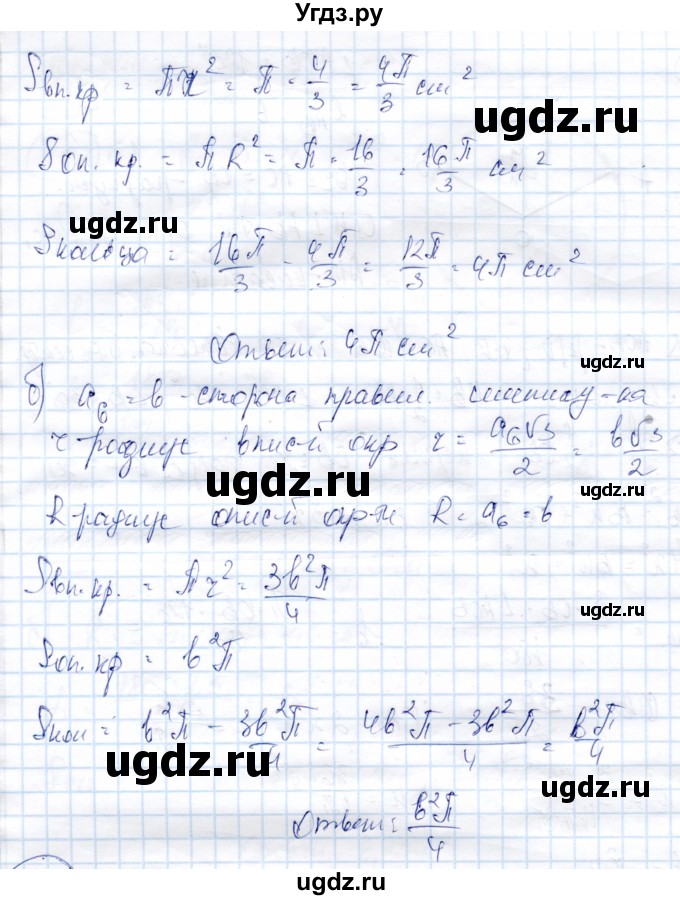 Угдз.ру
Sвп.кр = πr² = π · 4/3 = 4π/3 см²
Sоп.кр. = πR² = π · 16/3 = 16π/3 см²
ugdz.ru
ugdz.ru
Sкольца = 16π/3 - 4π/3 = 12π/3 = 4π см²
ugdz.ru
Ответ: 4π см²
ugdz.ru
б) a₆ = b - сторона правил. шестиуг-ка
r-радиус впис-й окр r = a₆√3/2 = b√3/2
ugdz.ru
ugdz.ru
R-радиус опис-й окр-и R = a₆ = b
Sвп.кр. = πr² = 3b²π/4
ugdz.ru
Sоп.кр = b²π
Sкол = b²π - 3b²π/4 = 4b²π - 3b²π/4 = b²π/4
ugdz.ru
ugdz.ru
Ответ: b²π/4
ugdz.ru
ugdz.ru